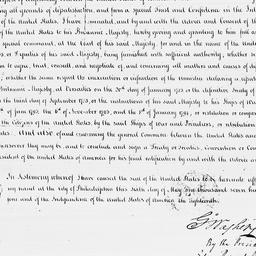 ing all grounds of dissatisfaction, and from a special trust and Confidence in the Integrity
of the United States, I have nominated, and by and with the advice and Consent of the
of the United States to his Britannic Majesty, hereby giving and granting to him full and
special command, at the Court of his said Majesty, for and in the name of the United
or Deputies of his said Majesty, being furnished with sufficient authority, whether
to agree, treat, consult and negotiate, of and concerning all matters and causes of
whether the same respect the inexecution or infraction of the Armistice declaring a cessation
Britannic Majesty, at Versailles on the 20th day of January 1783 or the definitive Treaty
on the third day of September 1783, or the instructions of his said Majesty to his Ships of War
8th of June 1793, the 6th of November 1793, and the 8th of January 1794, or restitution or compen
the Citizens of the United States by the said Ships of War and Privateers, or retribution
And also of and concerning the general Commerce between the United States and
wheresoever they may be, and to conclude and sign a Treaty or Treaties, Convention or Conv
President of the United States of America for his final ratification by and with the advice and
In Testimony whereof I have caused the seal of the United States to be hereunto aff
my hand at the City of Philadelphia this sixth day of May, One thousand seven hun
four and of the Independence of the United States of America the Eighteenth.
G:Washington
By the Presi